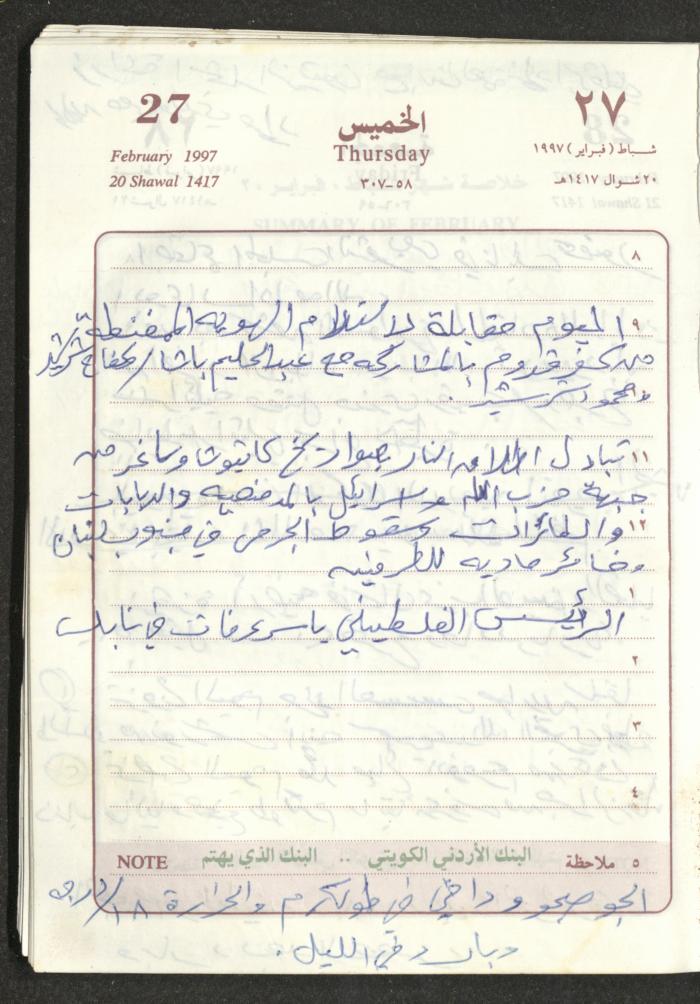 27
٢٧
الخميس
February 1997
Thursday
شباط (فبراير) ١٩٩٧
20 Shawal 1417
٥٨-٣٠٧
٢٠ شوال ١٤١٧هـ
٨
٩ اليوم مقابلة لاستلام الهوية الممغنطة
من كفر قدوم بالمشاركة مع عبدالحليم باشا / كفاح
١٠
١١ تبادل اطلاق النار بصواريخ كاتيوشا وساغر من
جبهة حزب الله واسرائيل بالمدفعية والدبابات
١٢ والطائرات وسقوط الجرحى في جنوب لبنان
وخسائر مادية للطرفين
١
الرئيس الفلسطيني ياسر عرفات في نابلس
٢
٣
٤
NOTE البنك الأردني الكويتي .. البنك الذي يهتم ٥ ملاحظة
الجو صحو ودافئ في طولكرم والحرارة ١٨/درجه
وبارد في الليل .